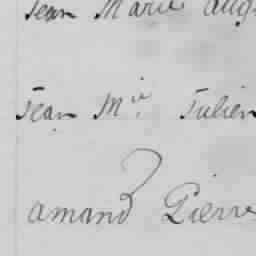 Jean Marie Aug
Jean M.ie Julien
amand Pierre